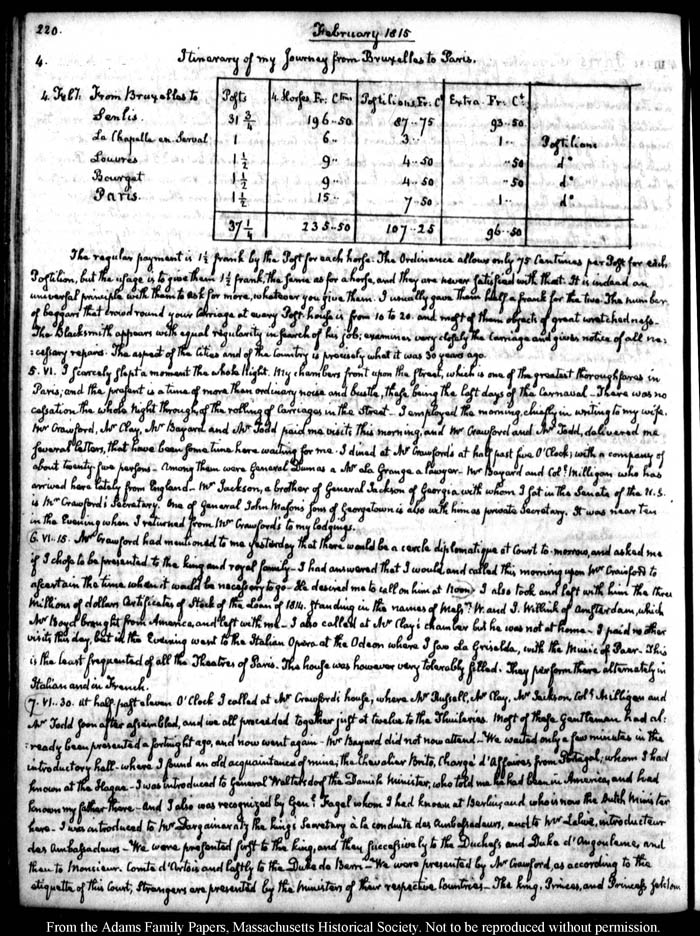 220.
February 1815
4.
Itinerary of my Journey from Bruxelles to Paris.
4. Feby: From Bruxelles to Posts 4. Horses Fr: Ctms Postilions Fr: Ct Extra Fr: Ct
Senlis. 31 3/4 196..50 87..75 93..50
La Chapelle en Serval 1 6.. 3.. 1.. Postilions
Louvres 1 1/2 9.. 4..50 ..50 do
Bourget 1 1/2 9.. 4..50 ..50 do
Paris. 1 1/2 15.. 7..50 1.. do
37 1/4 235..50 107..25 96..50
The regular payment is 1½ frank by the Post for each horse. The Ordinance allows only 75 Centimes per Post for each
Postilion, but the usage is to give them 1½ frank, the same as for a horse, and they are never satisfied with that. It is indeed an
universal principle with them to ask for more, whatever you give them. I usually gave them half a frank for the two. The number
of beggars that crowd round your carriage at every Post-house is from 10 to 20. and most of them objects of great wretchedness_
The Blacksmith appears with equal regularity in search of his job; examines very closely the Carriage and gives notice of all ne:
:cessary repairs. The aspect of the Cities and of the Country is precisely what it was 30 years ago.
5. VI. I scarcely slept a moment the whole Night. My chambers front upon the Street, which is one of the greatest thoroughfares in
Paris; and the present is a time of more than ordinary noise and bustle, these being the last days of the Carnaval_ There was no
cessation the whole Night through, of the rolling of Carriages in the Street_ I employed the morning, chiefly in writing to my wife.
Mr Crawford, Mr Clay, Mr Bayard and Mr Todd paid me visits this morning, and Mr Crawford and Mr Todd, delivered me
several letters, that have been some time here waiting for me. I dined at Mr Crawford's at half past five O'Clock, with a company of
about twenty-five persons_ Among them were General Dumas a Mr La Grange a lawyer_ Mr Bayard and Coll Milligan who has
arrived here lately from England_ Mr Jackson, a brother of General Jackson of Georgia with whom I sat in the Senate of the U.S.
is Mr Crawford's Secretary. One of General John Mason's Sons of Georgetown is also with him as private Secretary. It was near ten
in the Evening when I returned from Mr Crawford's to my lodgings.
6. VI. 15. Mr Crawford had mentioned to me yesterday that there would be a cercle diplomatique at Court to-morrow, and asked me
if I chose to be presented to the king and royal family_ I had answered that I would and called this morning upon Mr Crawford to
ascertain the time when it would be necessary to go_ He desired me to call on him at Noon_ I also took and left with him the three
Millions of dollars Certificates of Stock of the Loan of 1814. standing in the names of Messrs W. and J. Willink of Amsterdam, which
Mr Boyd brought from America, and left with me_ I also called at Mr Clay's chamber but he was not at home_ I paid no other
visits this day, but in the Evening went to the Italian Opera at the Odeon where I saw La Griselda, with the Music of Paer. This
is the least frequented of all the Theatres of Paris. The house was however very tolerably filled. They perform there alternately in
Italian and in French.
7. VI..30. At half past eleven O'Clock I called at Mr Crawford's house, where Mr Russell, Mr Clay, Mr Jackson Coll Milligan and
Mr Todd soon after assembled, and we all proceeded together just at twelve to the Thuileries. Most of these Gentlemen had al:
:ready been presented a fortnight ago, and now went again_ Mr Bayard did not now attend_ We waited only a few minutes in the
introductory hall_ where I found an old acquaintance of mine; the Chevalier Brito, Chargé d'Affaires from Portugal; whom I had
known at the Hague_ I was introduced to General Waltersdorf the Danish Minister, who told me he had been in America, and had
known my father there_ And I also was recognized by Genl Fagel whom I had known at Berlin, and who is now the Dutch Minister
here_ I was introduced to Mr Dargainaratz the king's Secretary à la conduite des Ambassadeurs, and to Mr Lalive, introducteur
des Ambassadeurs_ We were presented first to the king, and then successively to the Duchess and Duke d'Angouleme, and
then to Monsieur. Comte d'Artois and lastly to the Duke de Berri_ We were presented by Mr Crawford, as according to the
etiquette of this Court, Strangers are presented by the Ministers of their respective Countries_ The king, Princes, and Princess seldom
From the Adams Family Papers, Massachusetts Historical Society. Not to be reproduced without permission.